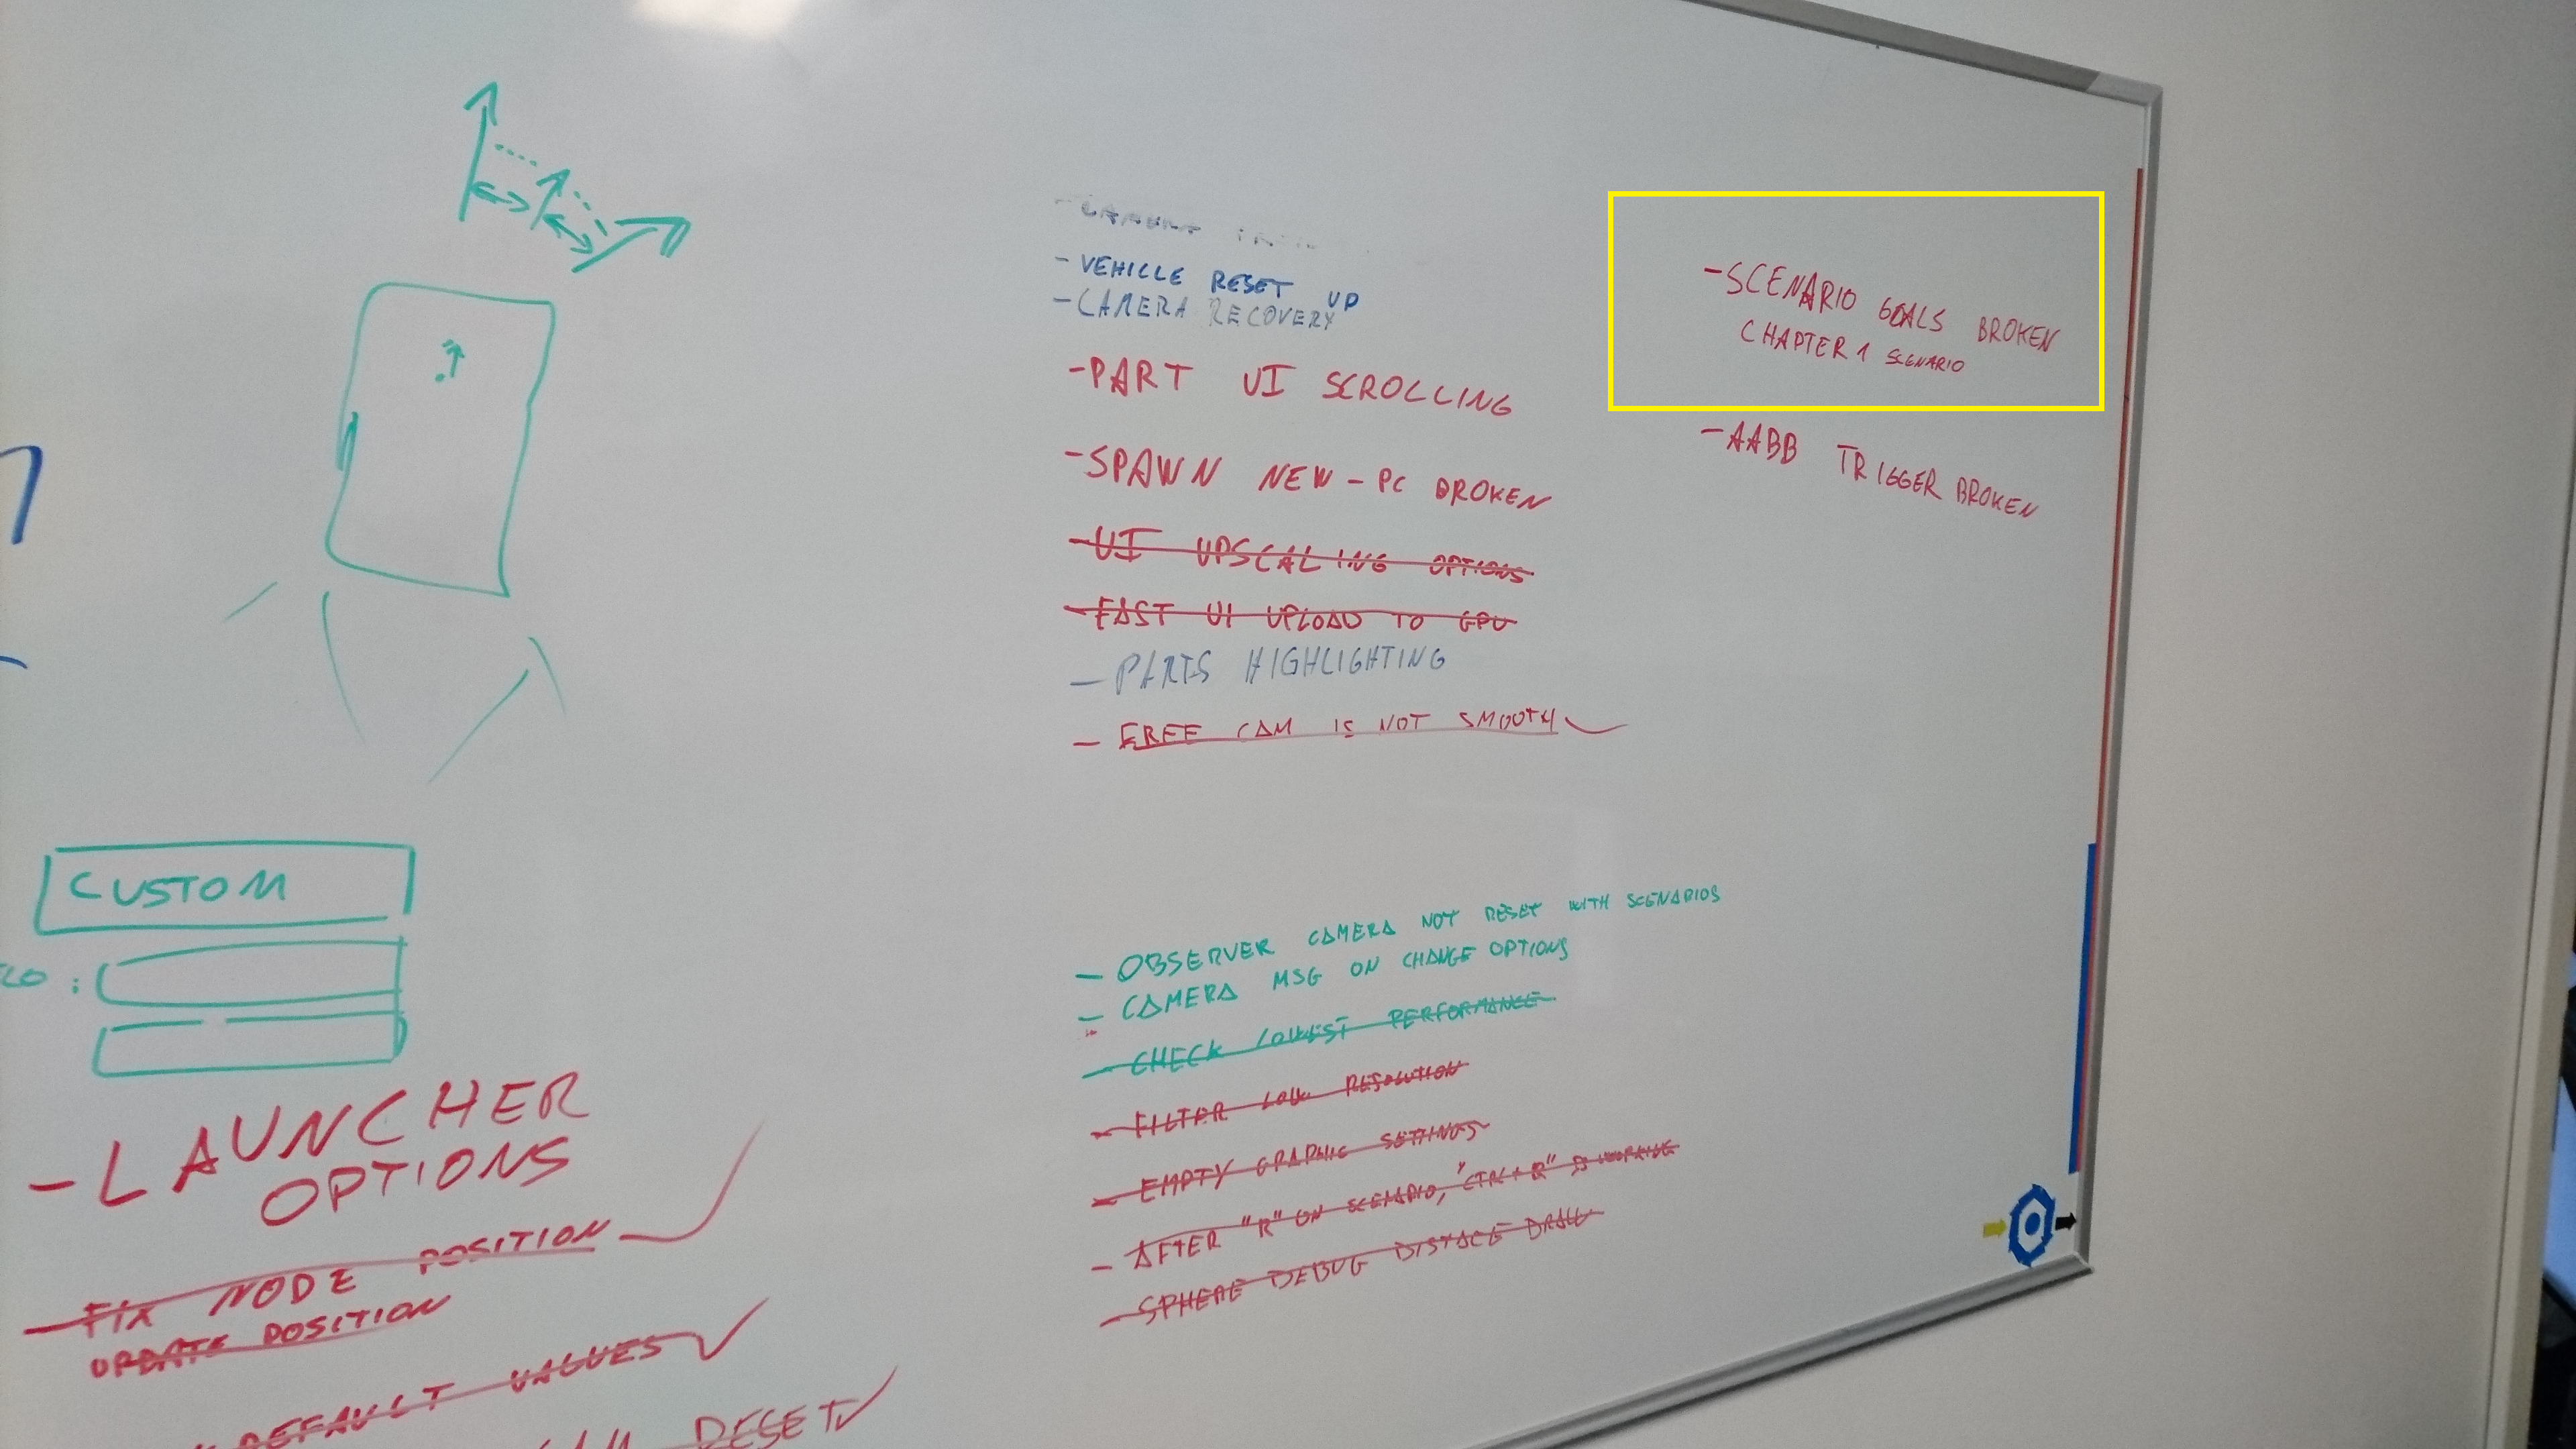 - VEHICLE RESET UP
- CAMERA RECOVERY
- PART UI SCROLLING
- SPAWN NEW - PC BROKEN
- UI UPSCALING OPTIONS
- FAST UI UPLOAD TO GPU
- PARTS HIGHLIGHTING
- FREE CAM IS NOT SMOOTH
- SCENARIO GOALS BROKEN
CHAPTER 1 SCENARIO
- AABB TRIGGER BROKEN
- OBSERVER CAMERA NOT RESET WITH SCENARIOS
- CAMERA MSG ON CHANGE OPTIONS
- CHECK LOWEST PERFORMANCE
- FILTER LOW RESOLUTION
- EMPTY GRAPHIC SETTINGS
- AFTER "R" ON SCENARIO, "CTRL + R" IS WORKING
- SPHERE DEBUG DISTACE DRAW
CUSTOM
:
- LAUNCHER
OPTIONS
- FIX NODE POSITION
UPDATE POSITION
DEFAULT VALUES
RESET